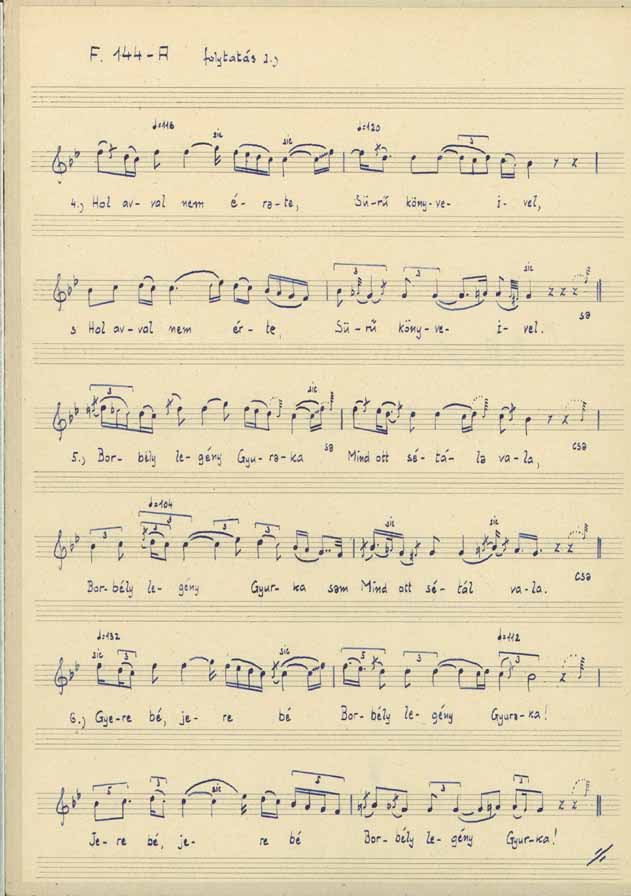 F. 144-A folytatás 2.,
♩=116 sic sic ♩=120 3
4., Hol av-val nem é-rə-te, Sű-rű köny-ve-i-vel,
3 3 sic
s Hol av-val nem ér-te, Sű-rű köny-ve-i-vel. sə
3 sic
5., Bor-bély le-gény Gyu-rə-ka sə Mind ott sé-tá-lə va-la, csə
♩=104
3 3 3 3 3 sic sic
Bor-bély le-gény Gyur-ka səm Mind ott sé-tál va-la. csə
♩=132 ♩=112
sic 3 sic 3 3 3
6., Gye-re bé, je-re bé Bor-bély le-gény Gyurə-ka!
5 3 sic 5 3
Je-re bé, je-re bé Bor-bély le-gény Gyur-ka!